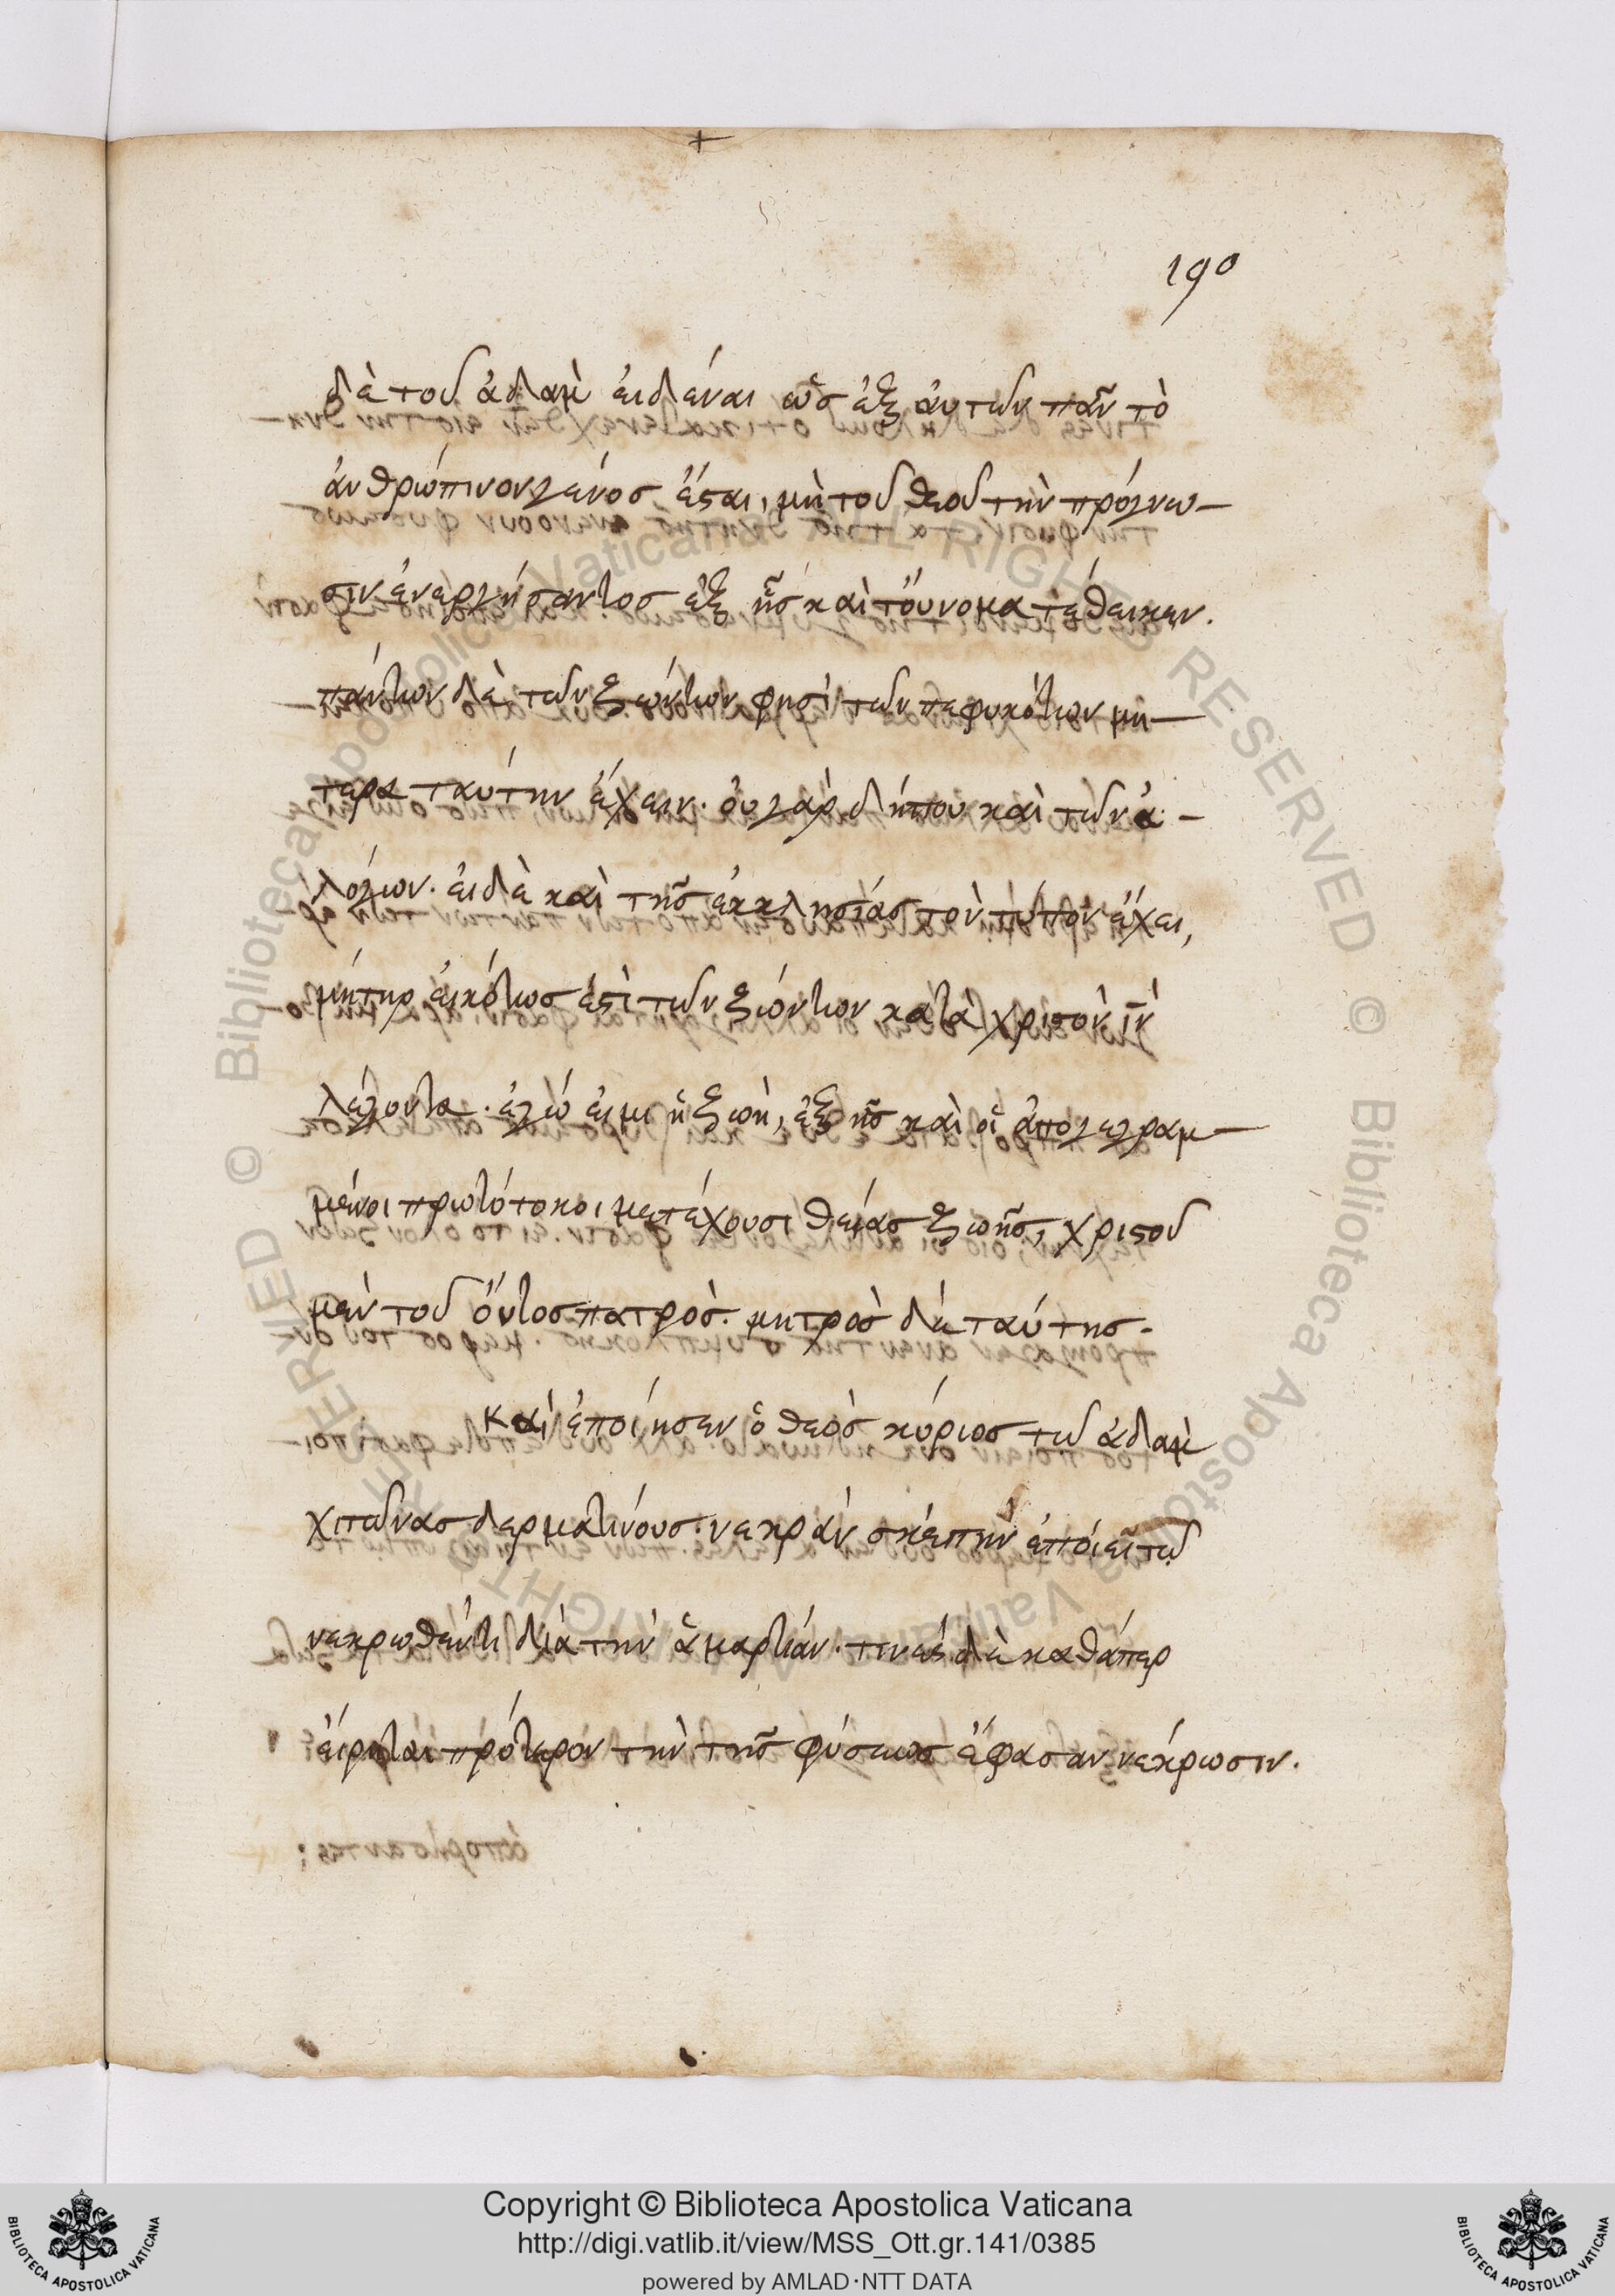 190
δὲ τοῦ ἀδὰμ εἰδέναι ὡς ἐξ αὐτῶν πᾶν τὸ
ἀνθρώπινον γένος ἔσται, μὴ τοῦ θεοῦ τὴν πρόγνω-
σιν ἐνεργήσαντος ἐξ ἧς καὶ τοὔνομα τέθεικεν.
πάντων δὲ τῶν ζώντων φησὶ τῶν πεφυκότων μη-
τερα ταύτην ἔχειν. οὐ γὰρ δήπου καὶ τῶν ἀ-
λόγων. εἰ δὲ καὶ τῆς ἐκκλησίας τὸν τύπον ἔχει,
μήτηρ εἰκότως ἐστὶ τῶν ζώντων κατὰ χριστὸν ἰν
λέγοντα. ἐγώ εἰμι ἡ ζωὴ, ἐξ ἧς καὶ οἱ ἀπογεγραμ-
μένοι πρωτότοκοι μετέχουσι θείας ζωῆς, χριστοῦ
μὲν τοῦ ὄντος πατρὸς. μητρὸς δὲ ταύτης.
Καὶ ἐποίησεν ὁ θεὸς κύριος τῶ ἀδὰμ
χιτῶνας δερματίνους. νεκρὰν σκέπην ἐποίει τῶ
νεκρωθέντι διὰ τὴν ἁμαρτίαν. τινὲς δὲ καθάπερ
εἴρηται πρότερον τὴν τῆς φύσεως ἔφασαν νέκρωσιν.
Copyright © Biblioteca Apostolica Vaticana
http://digi.vatlib.it/view/MSS_Ott.gr.141/0385
powered by AMLAD·NTT DATA
BIBLIOTECA APOSTOLICA VATICANA
BIBLIOTECA APOSTOLICA VATICANA